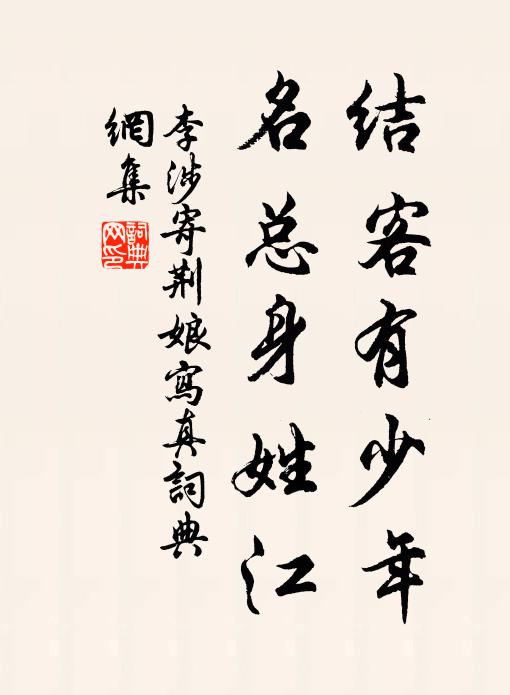 结客有少年
名总身姓江
李涉寄荆娘寫真詞典
網集
詞典网印